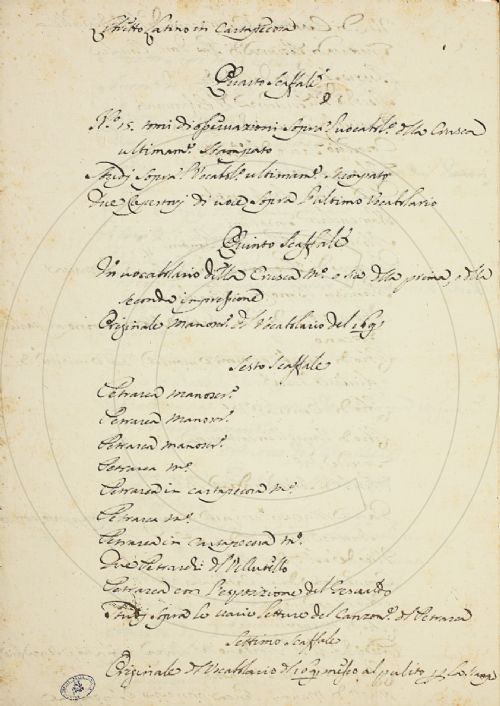 Libretto Latino in Cartapecora
Quarto Scaffale
N.º 15. tomi di osservazioni Sopra il vocab.º della Crusca
ultimam.e Stampato
Studj Sopra il Vocab.º ultimam.e Stampato
Due Repertorj di voci Sopra l'ultimo Vocabolario
Quinto Scaffale
Un vocabolario della Crusca m.º o sia della prima, o della
seconda impressione
Originale Manoscr.º del Vocabolario del 1691
Sesto Scaffale
Petrarca manoscr.º
Petrarca manoscr.º
Petrarca manoscr.º
Petrarca m.º
Petrarca in cartapecora m.º
Petrarca m.º
Petrarca in cartapecora m.º
Due Petrarchi del Vellutello
Petrarca con l'espositione del Gesualdo
Studj Sopra le varie letture del Canzon.e del Petrarca
Settimo Scaffale
Originale del Vocabolario del 1691 messo al pulito